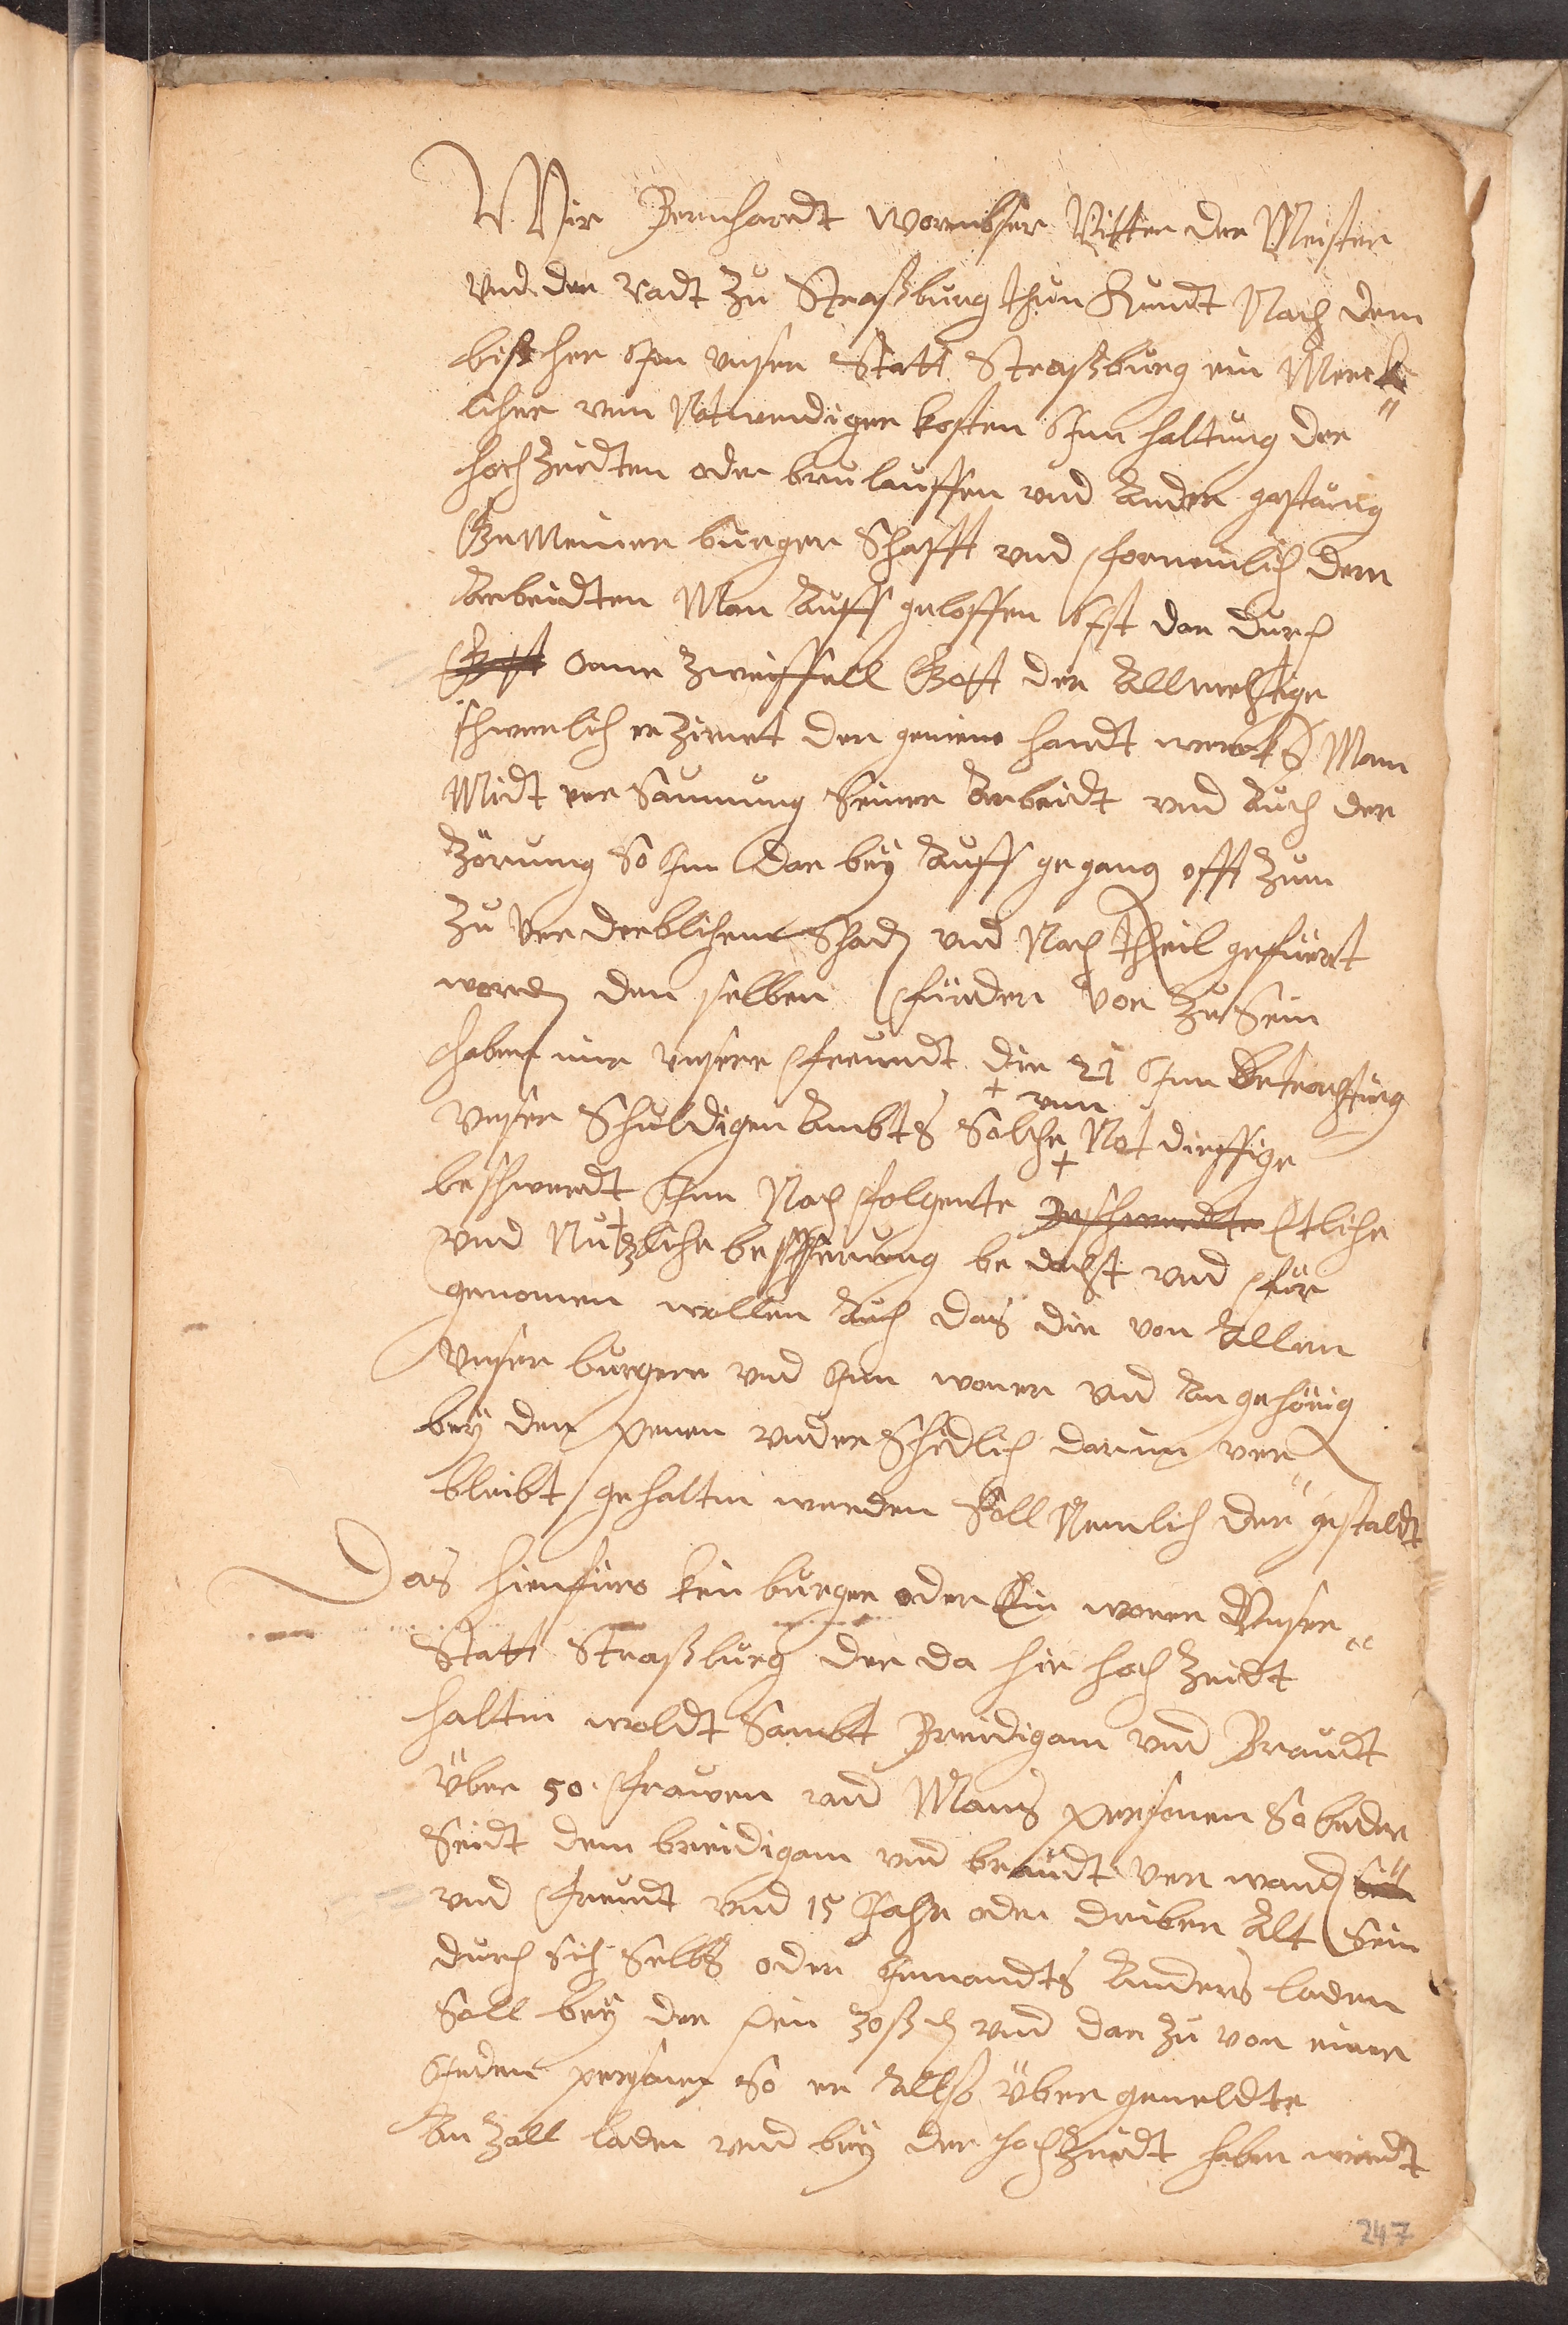 Wir Bernhardt wormbser Ritter der Meister
vnd der Radt Zu Straßburg thun kundt Nach dem
bißher Inn vnser Statt Straßburg ein Merck
licher vnn Notwendiger kosten Inn haltung der
hochzeidten oder brulauffen vnd Ander gastung
Gemeiner burger Schafft vnd fornemlich dem
Arbeidten Man Auff geloffen Ist dar durch
Gott oane Zweiffell Gott der Allmechtige
schwerlich erZirnet der gemene handt wercks Man
Midt ver Saumung Seiner Arbeidt vnd Auch der
Zörung So Im Dar bey Auff gegang offt Zum
Zu verderblichem Schad vnd Nach theil gefüert
worden dem selben fürder vor Zu Sein
haben mir vnsere freundt die 21 Inn Betrachtung
vnser Schuldigen Ambts Solche + vnn Not dirfftige
beschwerdt Inn Nach folgente Beschwerdte Etliche
vnd Nutzliche besserung be dacht vnd für
genomen wollen Auch das die von Allen
vnser burgern vnd Inn woner vnd An gehörig
bey den penen vnder Schidlich darinn ver
bleibt gehalten werden Soll Nemlich der gestaldt
Das hienfüro kein burger oder Ein woner Vnser
Statt Straßburg der da hie hoch Zeidt
halten woldt Sambt Breidigam vnd Braudt
über 50 frawen vnd Mans personen So beder
Seidt dem breidigam vnd braudt ver wand
vnd freundt vnd 15 Jahr oder driber Alt Sein
durch Sich Selbs oder Jemandts Anders laden
Soll bey der pen 30 ß d vnd dar Zu von einer
Jeden personen So er Allso über gemeldte
An Zall laden vnd bey der hochZeidt haben wirdt
247